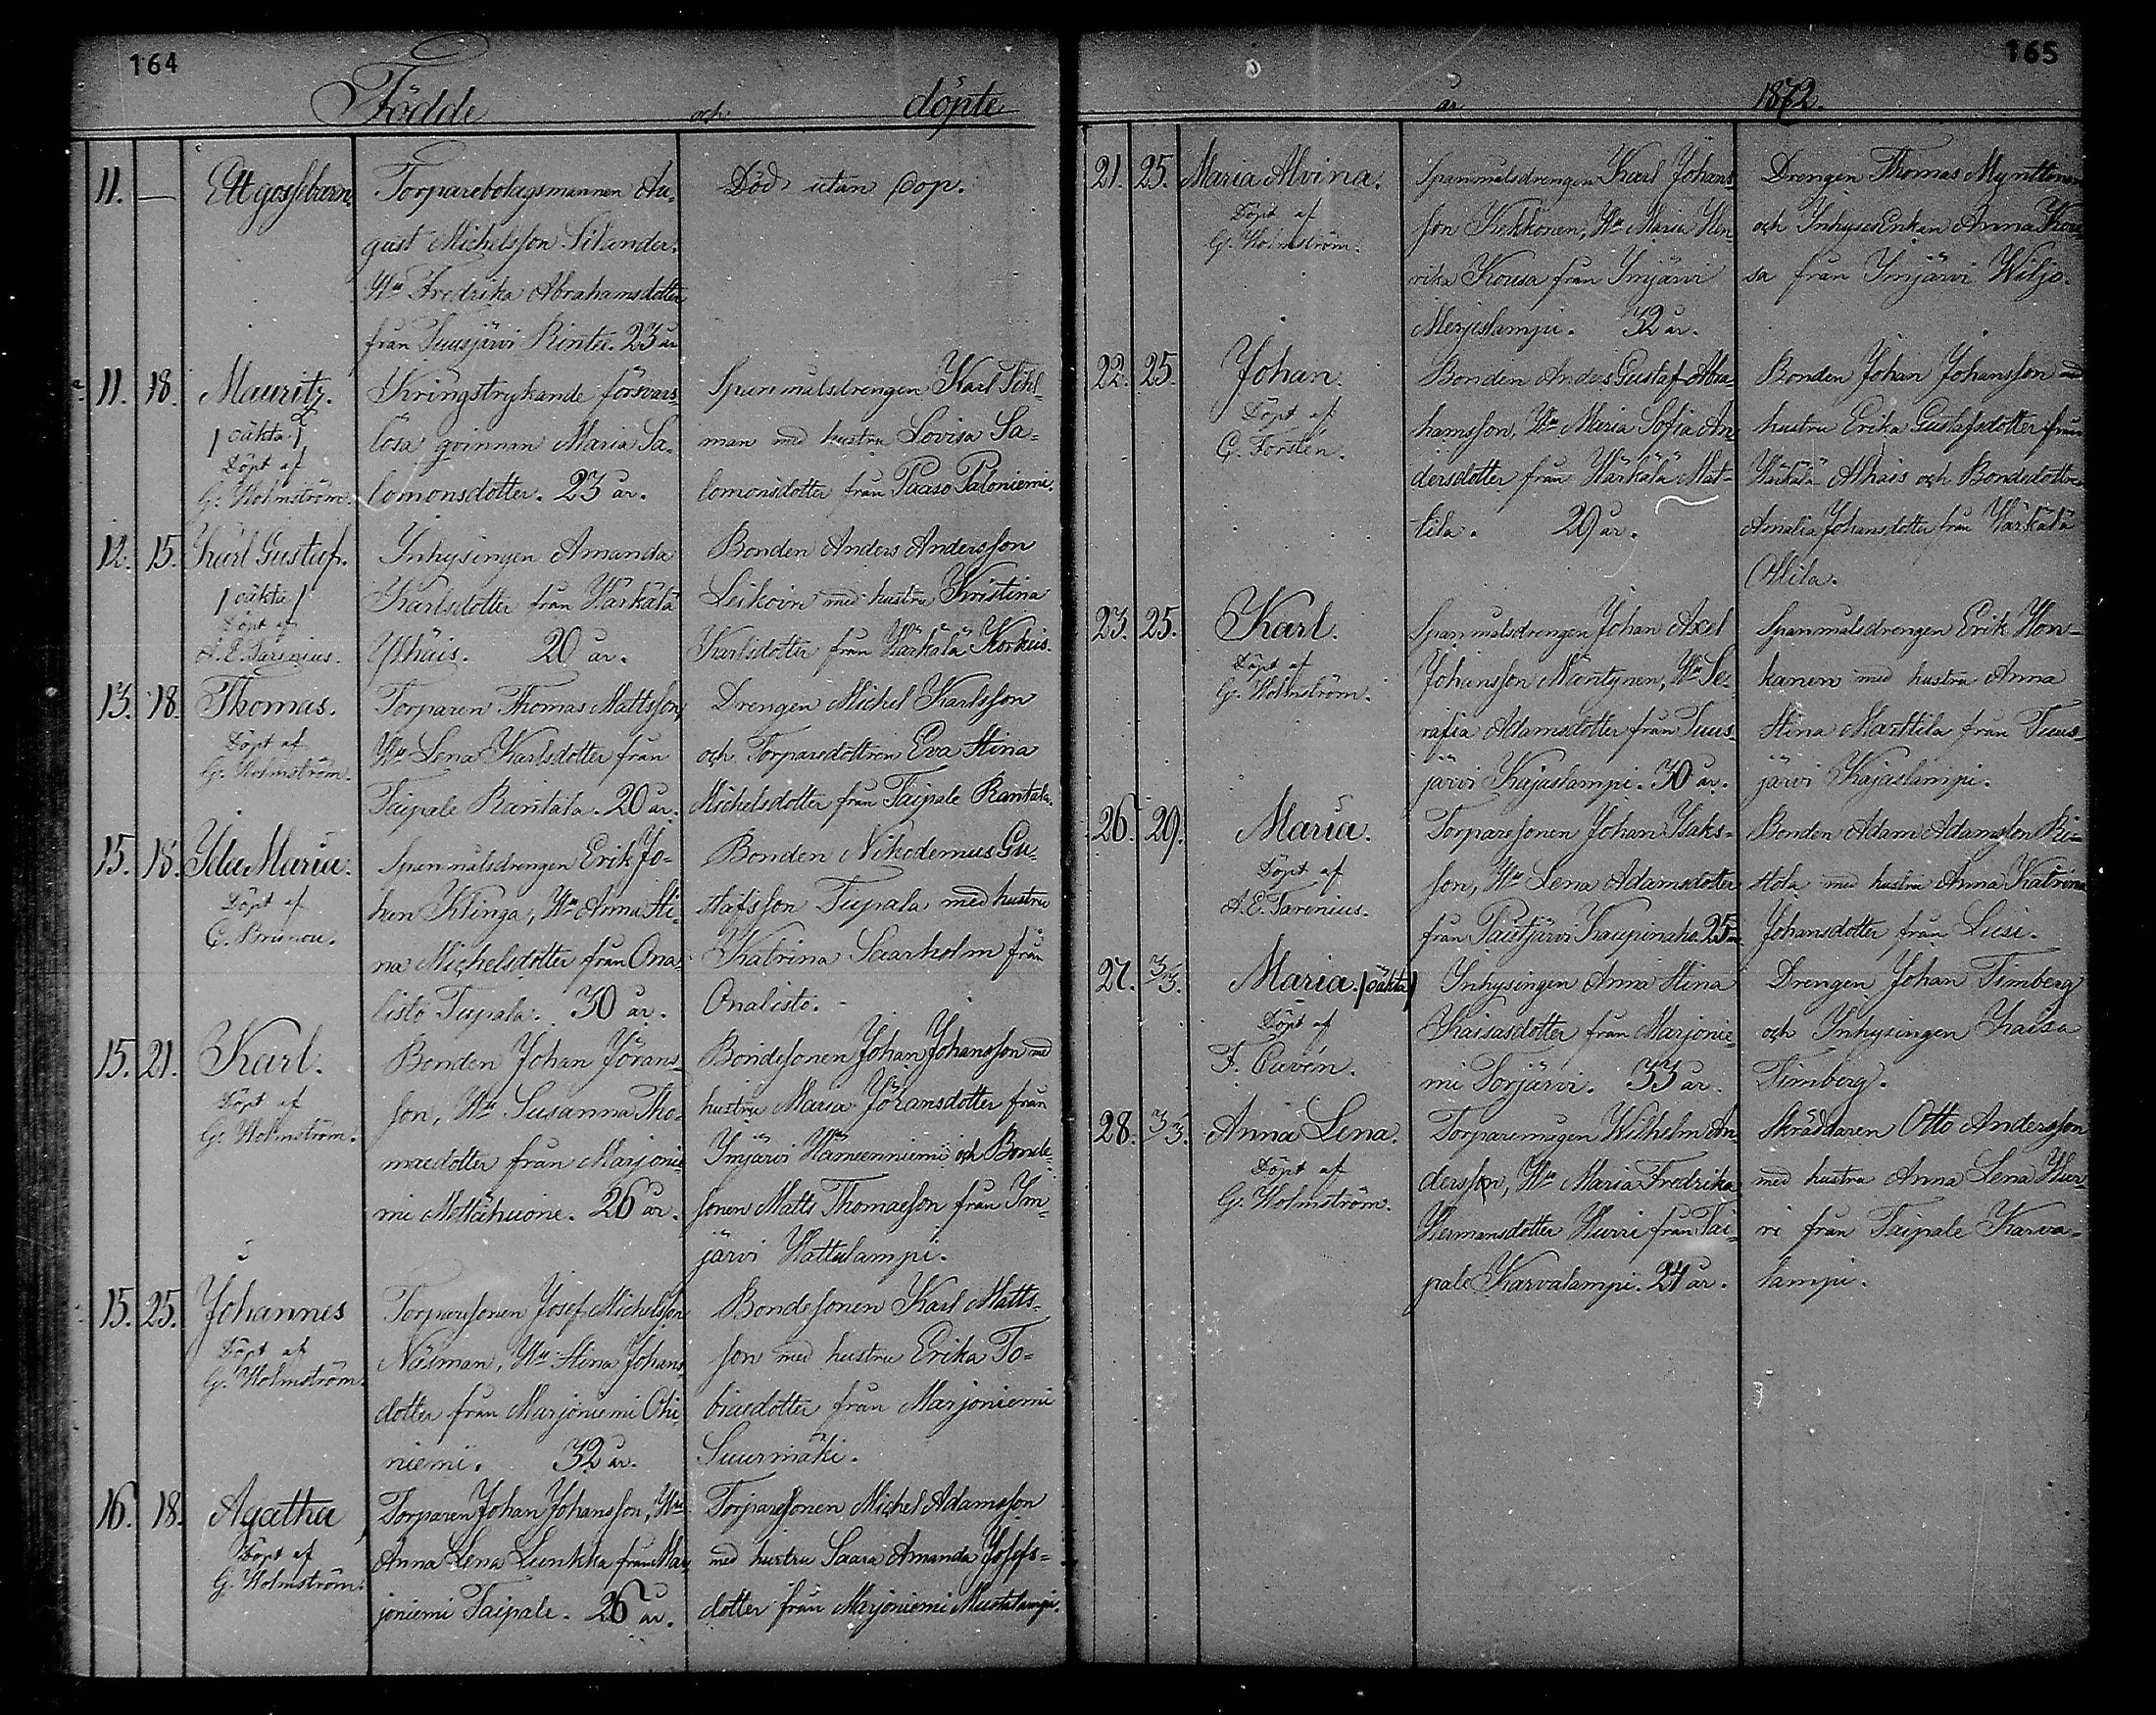 164
Födde och döpte
11. — Ett gossebarn. Torparebolagsmannen Au-
gust Michelsson Silander.
Hu Fredrika Abrahamsdotter
från Tuusjärvi Rintee. 23 år
Död utan dop.
11. 18. Mauritz.
/oäkta/
Döpt af
G. Holmström.
Kringstrykande försvars-
lösa qvinnan Maria Sa-
lomonsdotter. 23 år.
Spanmålsdrengen Karl Fihl-
man med hustru Lovisa Sa-
lomonsdotter från Paaso Paloniemi.
12. 15. Karl Gustaf.
/oäkta/
Döpt af
A. E. Tarenius.
Inhysingen Amanda
Karlsdotter från Härkälä
Ylhäis. 20 år.
Bonden Anders Andersson
Leskoin med hustru Kristina
Karlsdotter från Härkälä Korkus.
13. 18. Thomas.
Döpt af
G. Holmström.
Torparen Thomas Mattsson,
Hu Lena Karlsdotter från
Taipale Rantala. 20 år.
Drengen Michel Karlsson
och Torparedottren Eva Stina
Michelsdotter från Taipale Rantala.
15. 18. Ida Maria.
Döpt af
C. Brunou.
Spanmålsdrengen Erik Jo-
han Klinga, Hu Anna Sti-
na Michelsdotter från Ona-
listo Tupala. 30 år.
Bonden Nikodemus Gu-
stafsson Tupala med hustru
Katrina Saarholm från
Onalisto.
15. 21. Karl.
Döpt af
G. Holmström.
Bonden Johan Jörans-
son, Hu Susanna Tho-
maedotter från Marjonie-
mi Mettähuone. 26 år.
Bondesonen Johan Johansson med
hustru Maria Jöransdotter från
Imjärvi Hämeenniemi och Bonde-
sonen Matts Thomaeson från Im-
järvi Hattulampi.
15. 25. Johannes
Döpt af
G. Holmström.
Torparesonen Josef Michelsson
Näsman, Hu Stina Johans-
dotter från Marjoniemi Ohi-
niemi. 32 år.
Bondesonen Karl Matts-
son med hustru Erika To-
biaedotter från Marjoniemi
Suurmäki.
16. 18. Agatha
Döpt af
G. Holmström.
Torparen Johan Johansson, Hu
Anna Lena Lunkka från Mar-
joniemi Taipale. 26 år.
Torparesonen Michel Adamsson
med hustru Saara Amanda Josefs-
dotter från Marjoniemi Mustalampi.
165
år 1872.
21. 25. Maria Alvina.
Döpt af
G. Holmström.
Spanmålsdrengen Karl Johans-
son Kekkonen, Hu Maria Hen-
rika Kousa från Imjärvi
Merjeslampi. 32 år.
Drengen Thomas Mynttinen
och InhysesEnkan Anna Kou-
sa från Imjärvi Wiljo.
22. 25. Johan.
Döpt af
C. Forstén.
Bonden Anders Gustaf Abra-
hamsson, Hu Maria Sofia An-
dersdotter från Härkälä Mat-
tila. 29 år.
Bonden Johan Johansson med
hustru Erika Gustafsdotter från
Härkälä Alhais och Bondedottren
Amalia Johansdotter från Härkälä
Ollila.
23. 25. Karl.
Döpt af
G. Holmström.
Spanmålsdrengen Johan Axel
Johansson Mäntynen, Hu Se-
rafia Adamsdotter från Tuus-
järvi Kajaslampi. 30 år.
Spanmålsdrengen Erik Hon-
kanen med hustru Anna
Stina Marttila från Tuus-
järvi Kajaslampi.
26. 29. Maria.
Döpt af
A. E. Tarenius.
Torparesonen Johan Isaks-
son, Hu Lena Adamsdotter
från Pautjärvi Kaupinaho. 25 år
Bonden Adam Adamsson Ri-
stola med hustru Anna Katrina
Johansdotter från Lusi.
27. 3/3. Maria. /oäkta/
Döpt af
F. Cavén.
Inhysingen Anna Stina
Kaisasdotter från Marjonie-
mi Torjärvi. 33 år.
Drengen Johan Timberg
och Inhysingen Kaisa
Timberg.
28. 3/3. Anna Lena.
Döpt af
G. Holmström.
Torparemågen Wilhelm An-
dersson, Hu Maria Fredrika
Hermansdotter Hurri från Tai-
pale Karvalampi. 24 år.
Skräddaren Otto Andersson
med hustru Anna Lena Hur-
ri från Taipale Karva-
lampi.